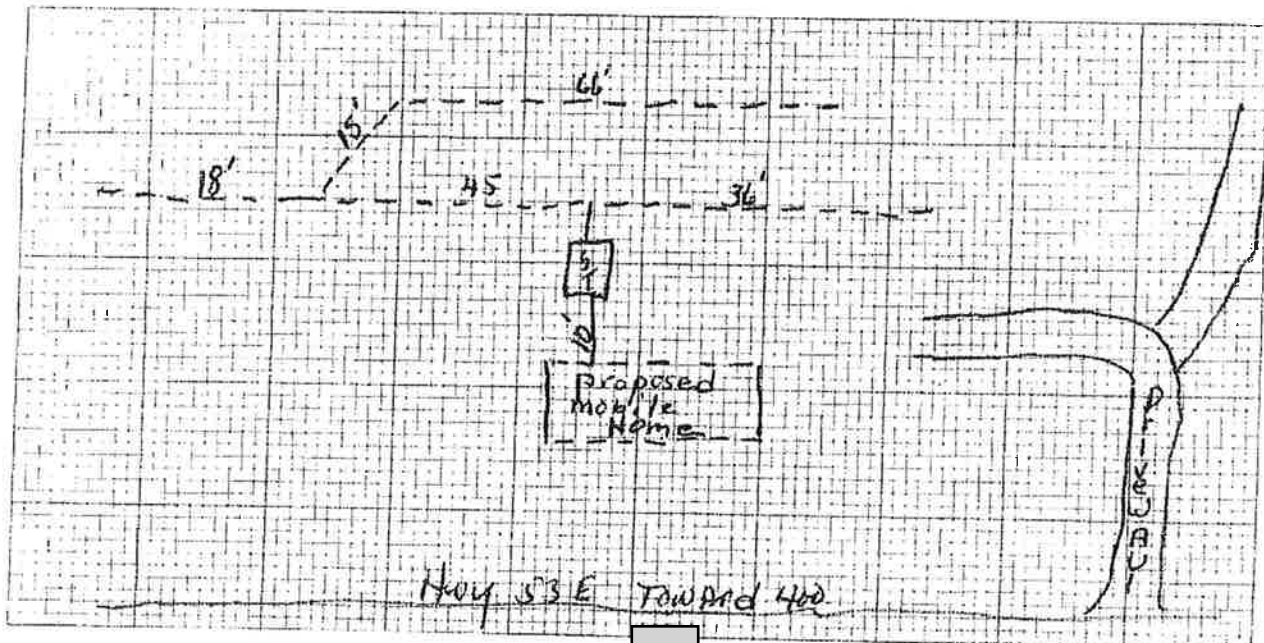 66'
15'
18'
45
36'
S/T
10'
proposed
Mobile
Home
DriveWAY
Hwy 53 E Toward 400